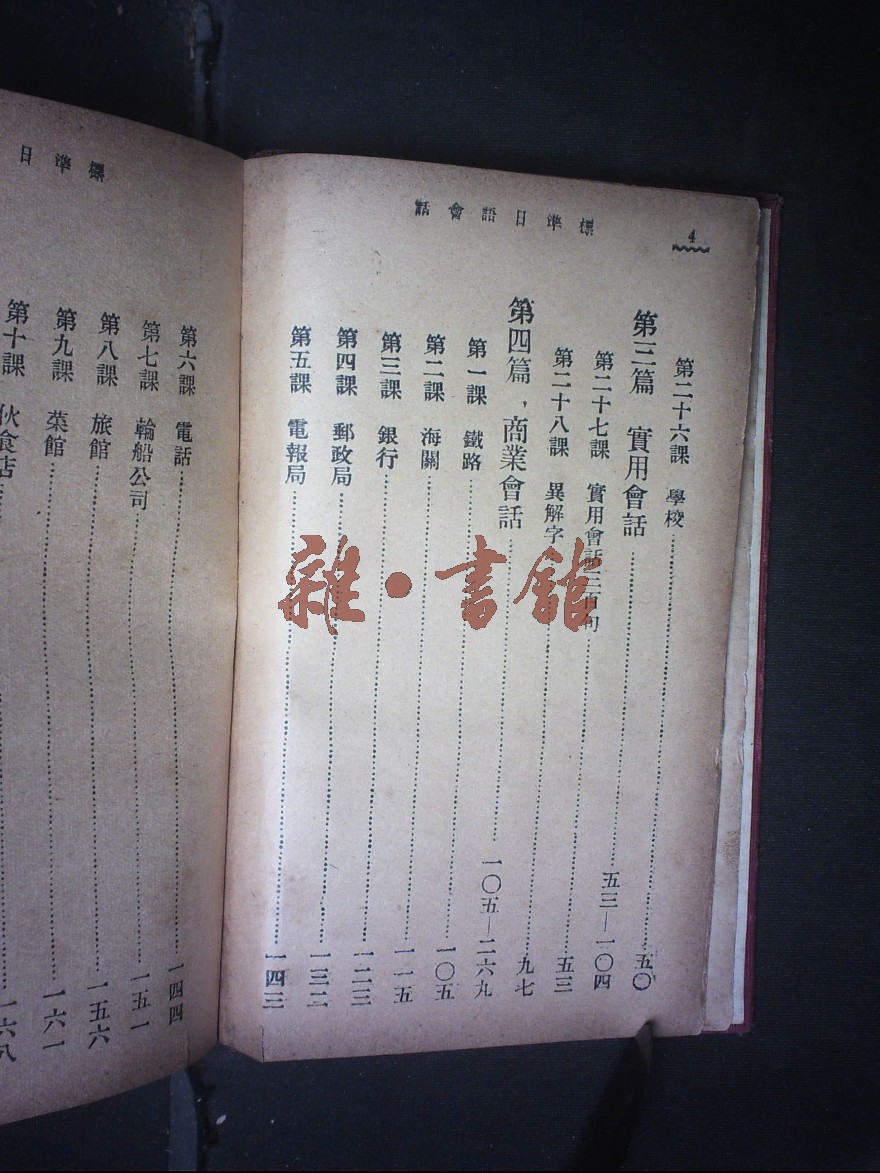 4
標準日語會話
第二十六課 學校……五〇
第三篇 實用會話……五三—一〇四
第二十七課 實用會話三百句……五三
第二十八課 異解字……九七
第四篇，商業會話……一〇五—二六九
第一課 鐵路……一〇五
第二課 海關……一一五
第三課 銀行……一二三
第四課 郵政局……一三二
第五課 電報局……一四三
標準日
第六課 電話……一四四
第七課 輪船公司……一五一
第八課 旅館……一五六
第九課 菜館……一六一
第十課 伙食店……一六八
雜·書館